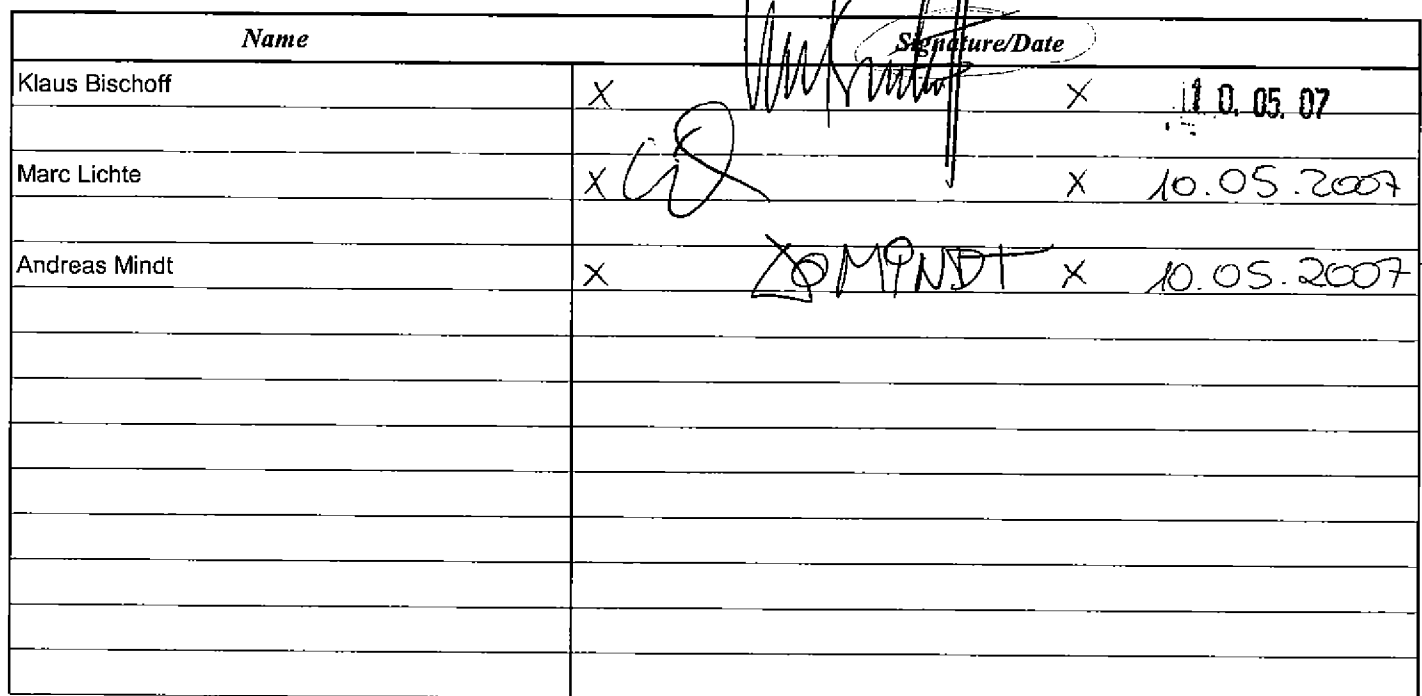 Name Signature/Date
Klaus Bischoff X X 10.05.07
Marc Lichte X X 10.05.2007
Andreas Mindt X MINDT X 10.05.2007